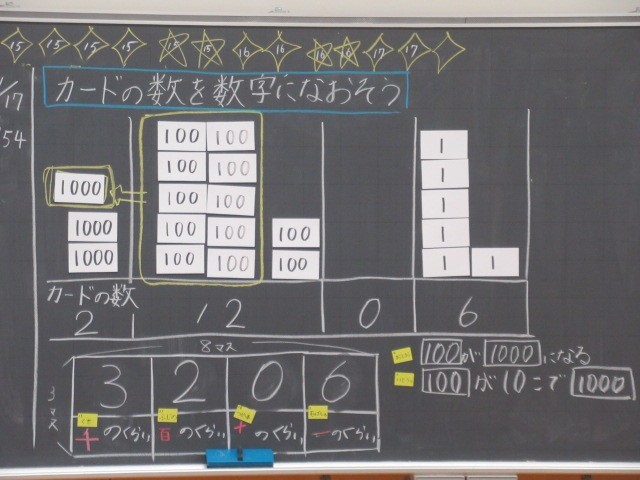 15 15 15 15 15 15 16 16 16 16 17 17
/17
54
カードの数を数字になおそう
1000
1000
1000
100 100
100 100
100 100
100 100
100 100
100
100
1
1
1
1
1 1
カードの数
2 12 0 6
8マス
3マス
3 2 0 6
千のくらい 百のくらい 十のくらい 一のくらい
100が1000になる
100が10こで1000